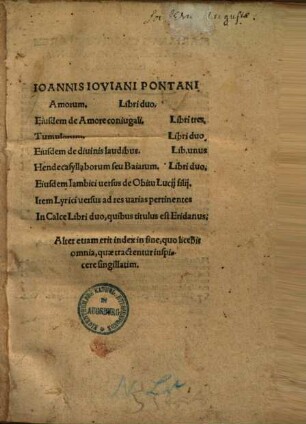 IOANNIS IOVIANI PONTANI
Amorum. Libri duo.
Eiusdem de Amore coniugali. Libri tres.
Tumulorum. Libri duo
Eiusdem de diuinis laudibus. Lib.unus
Hendecasyllaborum seu Baiarum. Libri duo.
Eiusdem Iambici versus de Obitu Lucij filij.
Item Lyrici versus ad res varias pertinentes
In Calce Libri duo, quibus titulus est Eridanus.
Alter etiam erit index in fine, quo licebit
omnia, quæ tractentur inspi-
cere singillatim.
IN
AUGSBURG